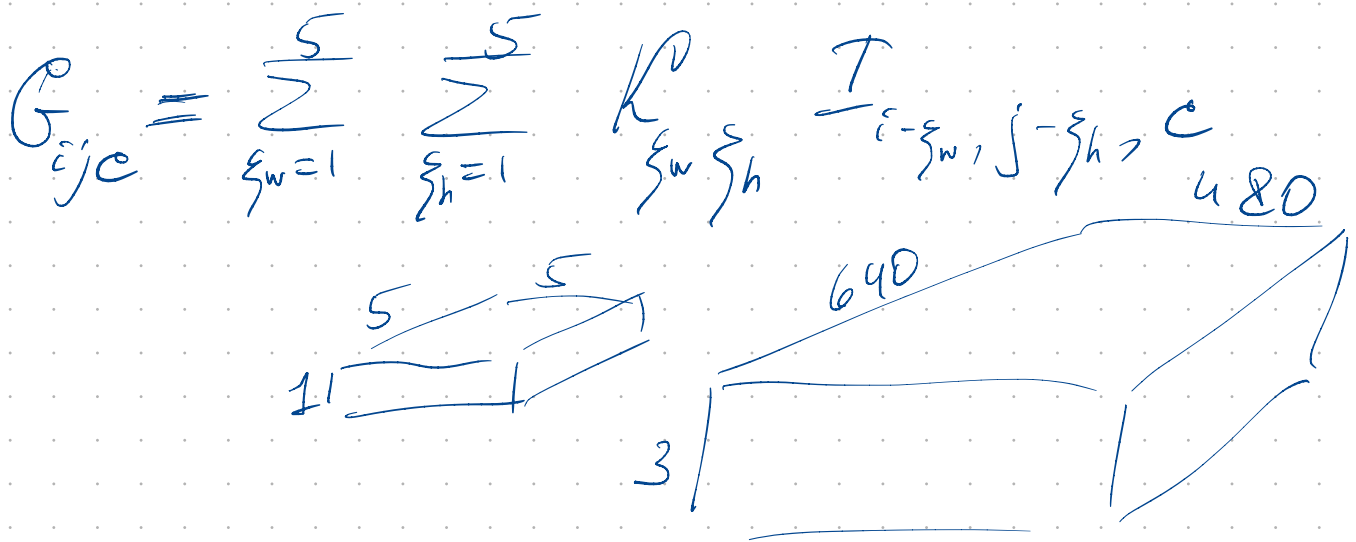 G_{ijc} = \sum_{ξ_w=1}^{5} \sum_{ξ_h=1}^{5} K_{ξ_w ξ_h} I_{i-ξ_w, j-ξ_h, c}
480
640
5
5
1
3